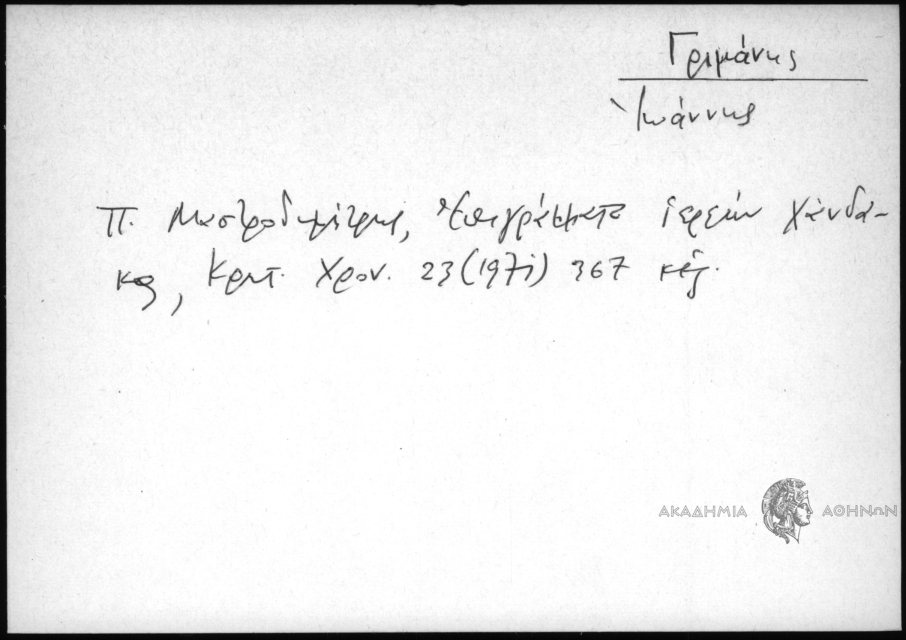 Γριμάνης
Ἰωάννης
Π. Μαστροδημήτρης, Ὑπογράμματα ἱερέων Χάνδα-
κος, Κρητ. Χρον. 23 (1971) 367 κἑξ.
ΑΚΑΔΗΜΙΑ ΑΘΗΝΩΝ